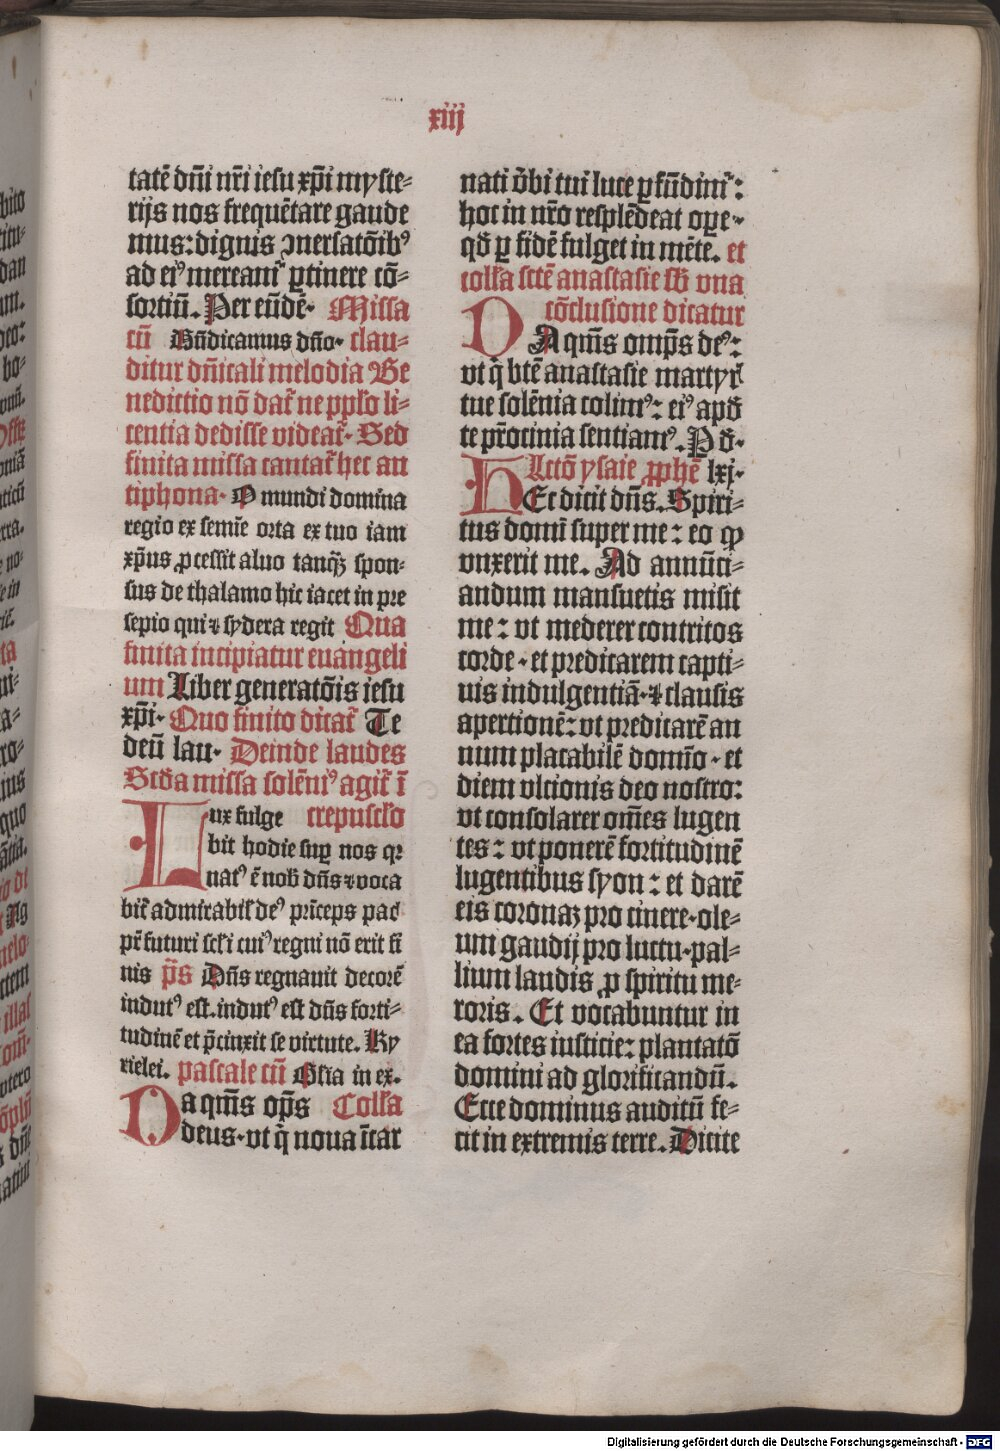 xiij
tatē dn̄i nr̄i iesu xp̄i myste-
rijs nos frequētare gaude
mus: dignis ꝯuersatōibꝰ
ad eiꝰ mereamr̄ ꝑtinere cō-
sortiū. Per eūdē. Missa
cū Bn̄dicamus dn̄o. clau-
ditur dn̄icali melodia Be
nedictio nō dat̄ ne ppl̄o li-
centia dedisse videat̄. Sed
finita missa cantat̄ hec an
tiphona. O mundi domina
regio ex semīe orta ex tuo iam
xp̄us ꝓcessit aluo tanqȝ spon-
sus de thalamo hic iacet in pre
sepio qui ⁊ sydera regit Qua
finita incipiatur euangeli
um Liber generatōis iesu
xp̄i. Quo finito dicat̄ Te
deū lau. Deinde laudes
Scd̄a missa solēniꝰ agit̄ ī
Lux fulge crepuscl̄o
bit hodie suꝑ nos qꝛ
natꝰ ē nob̄ dn̄s ⁊ voca
bit̄ admirabil̄ deꝰ prīceps pac̄
pr̄ futuri scl̄i cuiꝰ regni nō erit fi
nis p̄s Dn̄s regnauit decorē
indutꝰ est. indutꝰ est dn̄s forti-
tudinē et p̄cinxit se virtute. Ky
rielei. pascale cū Gl̄ia in ex.
Da qm̄s op̄s Coll̄a
deus. vt q̄ noua īcar
nati v̄bi tui luce ꝑfūdimr̄:
hoc in nr̄o resplēdeat oꝑe.
qd̄ ꝑ fidē fulget in mēte. et
coll̄a sctē anastasie sb̄ vna
cōclusione dicatur
DA qm̄s omp̄s deꝰ:
vt q̄ btē anastasie martyr̄
tue solēnia colimꝰ: eiꝰ apd̄
te pr̄ocinia sentiamꝰ. P d̄.
Lectō ysaie ꝓphē lxj.
HEc dicit dn̄s. Spiri-
tus domī super me: eo ꝙ
vnxerit me. Ad annūci-
andum mansuetis misit
me: vt mederer contritos
corde. et predicarem capti-
uis indulgentiā. ⁊ clausis
apertionē: vt predicarē an
num placabilē domīo. et
diem vlcionis deo nostro:
vt consolarer om̄es lugen
tes: vt ponerē fortitudinē
lugentibus syon: et darē
eis coronaꝫ pro cinere. ole-
um gaudij pro luctu. pal-
lium laudis ꝓ spiritu me-
roris. Et vocabuntur in
ea fortes iusticie: plantatō
domini ad glorificandū.
Ecce dominus auditū fe-
cit in extremis terre. Dicite
Digitalisierung gefördert durch die Deutsche Forschungsgemeinschaft - DFG